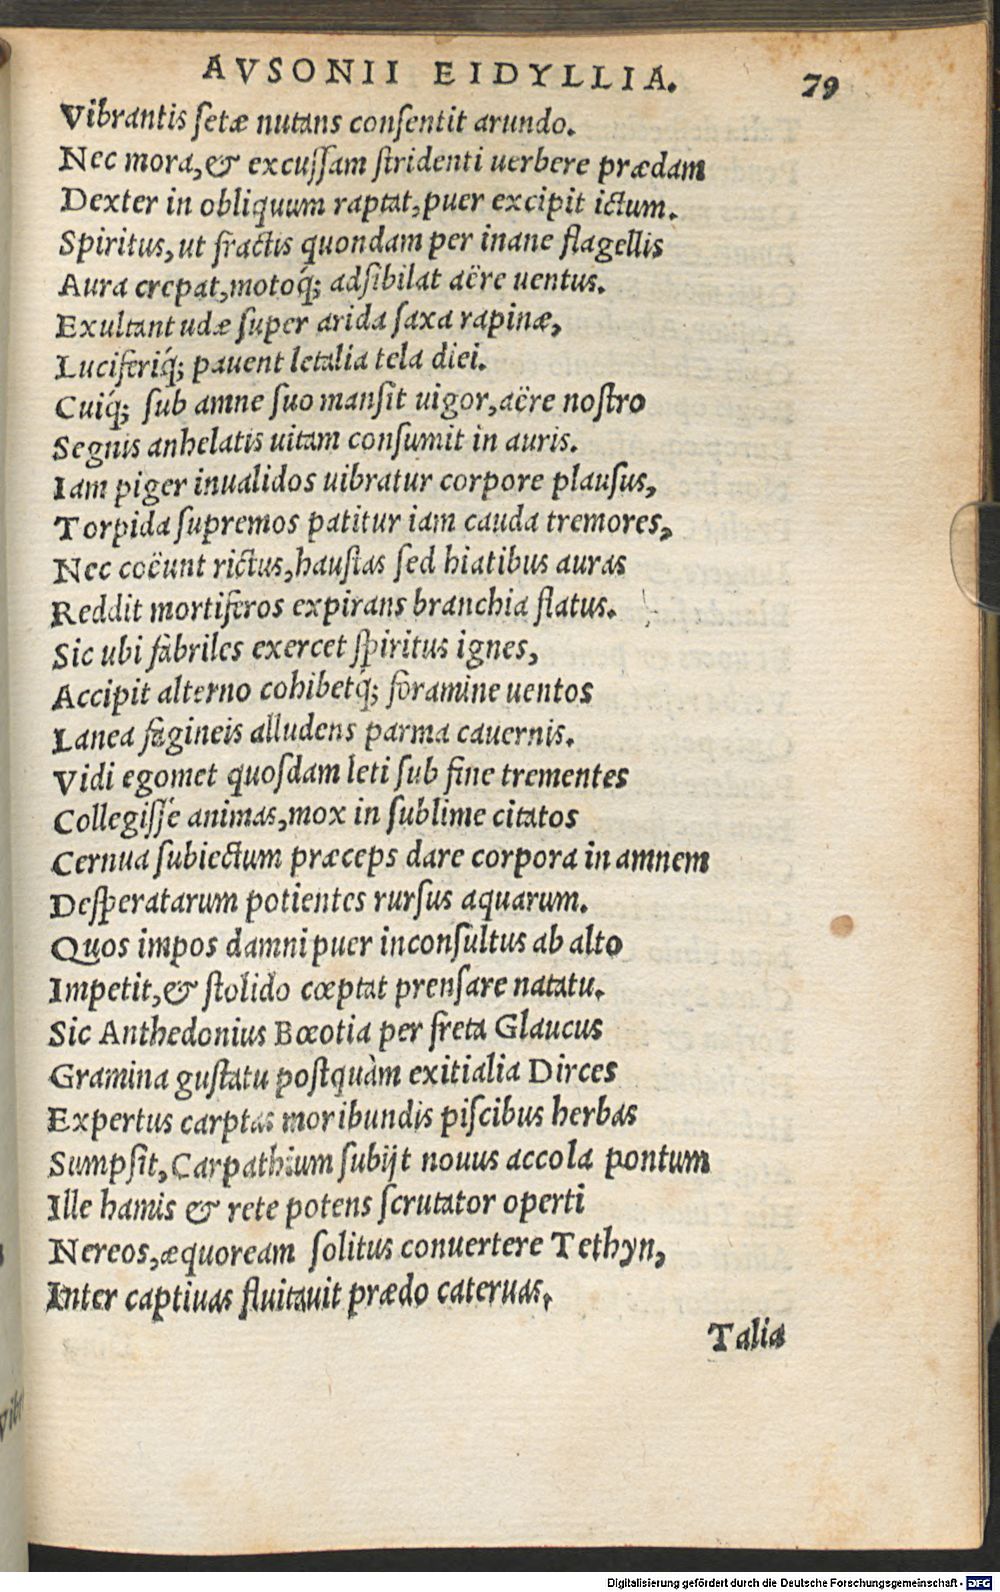 AVSONII EIDYLLIA. 79
Vibrantis setæ nutans consentit arundo.
Nec mora, & excussam stridenti uerbere prædam
Dexter in obliquum raptat, puer excipit ictum.
Spiritus, ut fractis quondam per inane flagellis
Aura crepat, motoq́; adsibilat aëre uentus.
Exultant udæ super arida saxa rapinæ,
Luciferiq́; pauent letalia tela diei.
Cuiq́; sub amne suo mansit uigor, aëre nostro
Segnis anhelatis uitam consumit in auris.
Iam piger inualidos uibratur corpore plausus,
Torpida supremos patitur iam cauda tremores,
Nec coëunt rictus, haustas sed hiatibus auras
Reddit mortiferos expirans branchia flatus.
Sic ubi fabriles exercet spiritus ignes,
Accipit alterno cohibetq́; foramine uentos
Lanea fagineis alludens parma cauernis.
Vidi egomet quosdam leti sub fine trementes
Collegisse animas, mox in sublime citatos
Cernua subiectum præceps dare corpora in amnem
Desperatarum potientes rursus aquarum.
Quos impos damni puer inconsultus ab alto
Impetit, & stolido cœptat prensare natatu.
Sic Anthedonius Bœotia per freta Glaucus
Gramina gustatu postquàm exitialia Dirces
Expertus carptas moribundis piscibus herbas
Sumpsit, Carpathium subijt nouus accola pontum
Ille hamis & rete potens scrutator operti
Nereos, æquoream solitus conuertere Tethyn,
Inter captiuas fluitauit prædo cateruas.
Talia
Digitalisierung gefördert durch die Deutsche Forschungsgemeinschaft - DFG